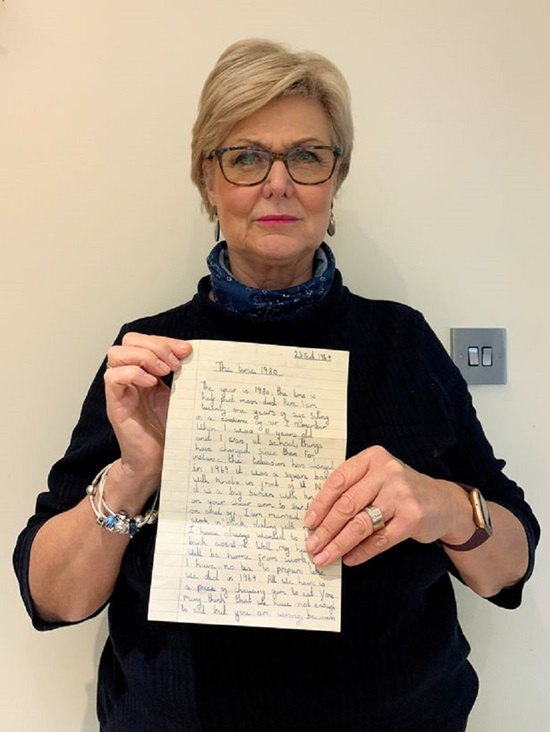 23rd 1969
The time 1980.
The year is 1980, the time is
half past
twenty one years of age siting
in a
When I was 11 years old
and I was at school, things
have changed since then for
instance the television has changed
in 1969 it was a square box
with knobs in front of it
it is a big screen with
on your chair arm to turn it
on and off. I am married
work in a bank
I have always wanted
bank Well my
will be home from work
I have no tea to prepare like
we did in 1969. All we have is
a piece of chewing gum to eat You
may think that we have not enough
to eat but you are wrong because